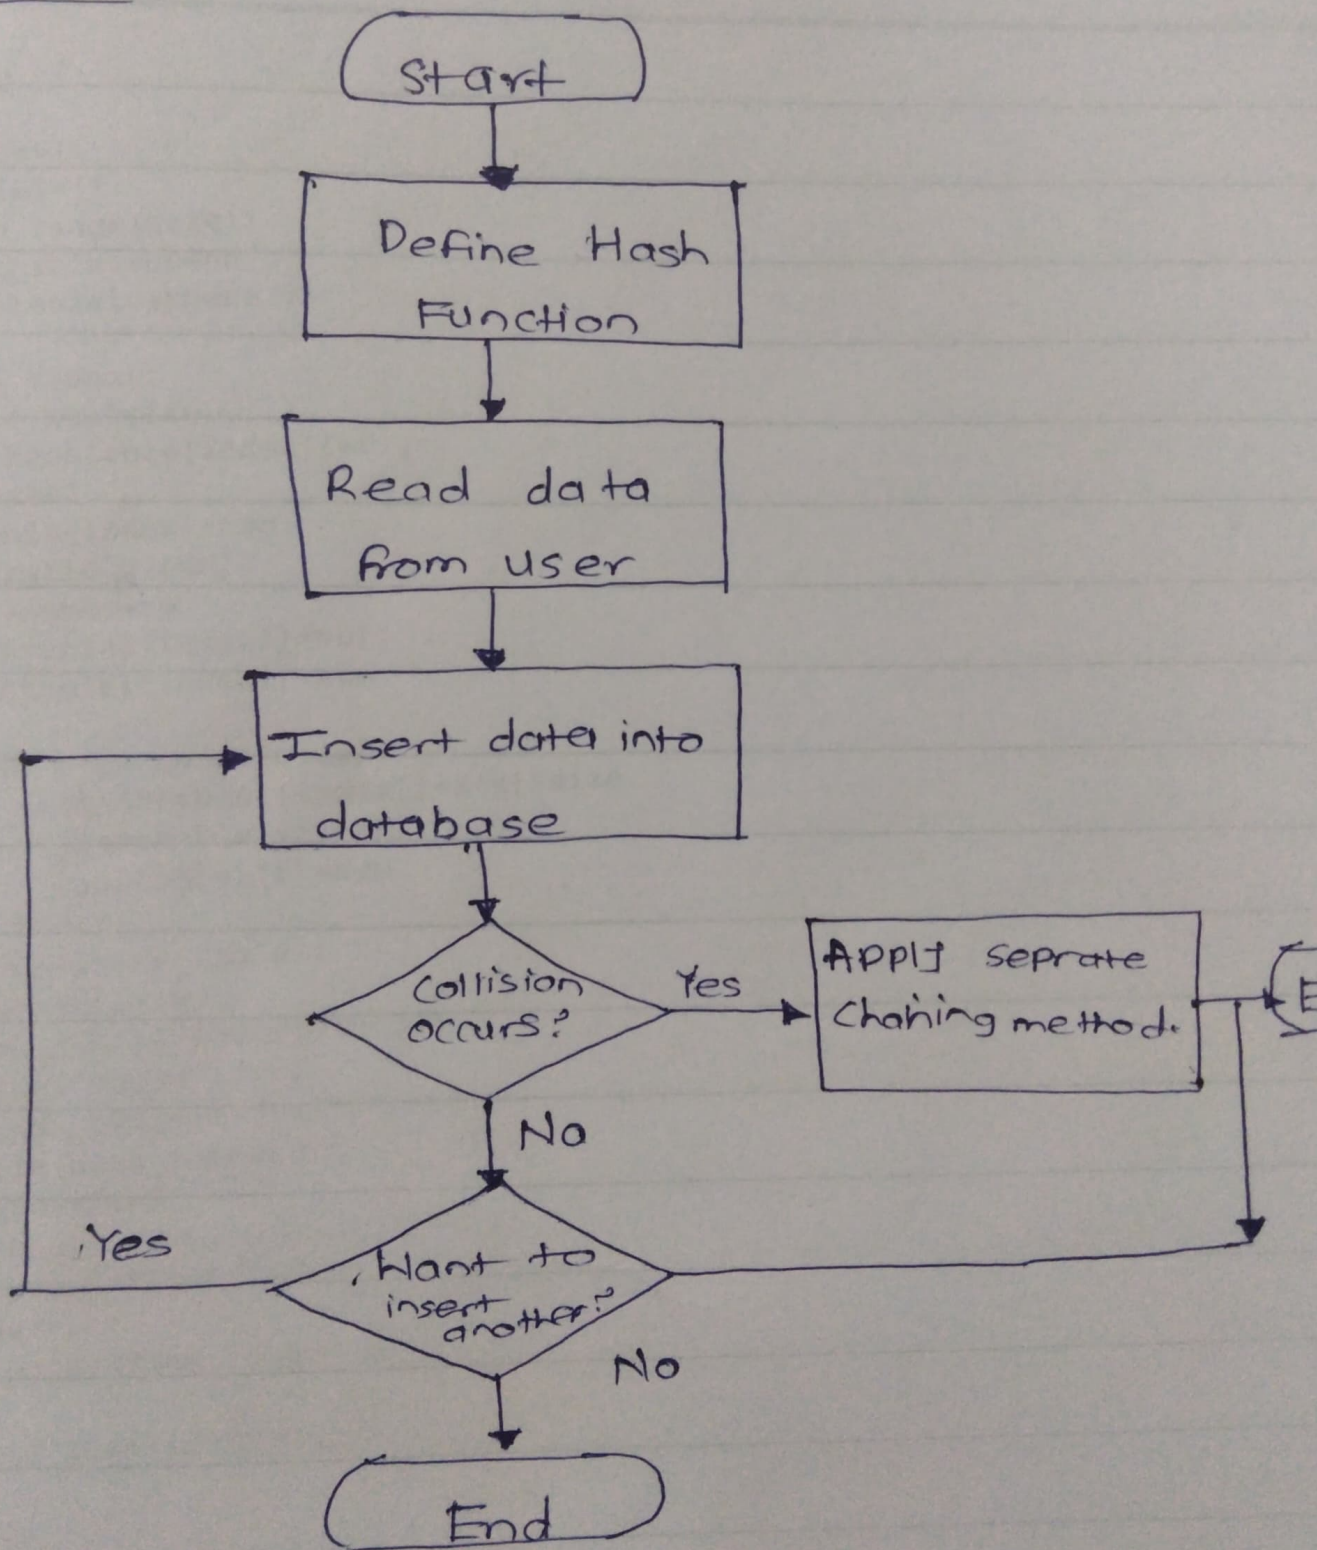 Start
Define Hash
Function
Read data
from user
Insert data into
database
Collision
occurs?
Yes
Apply seprate
Chaining method.
E
No
Yes
Want to
insert
another?
No
End